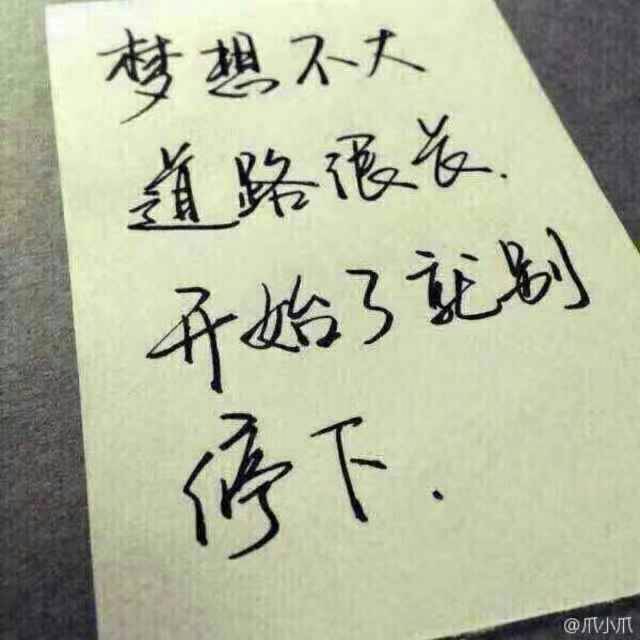 梦想不大
道路很长.
开始了就别
停下.
@爪小爪